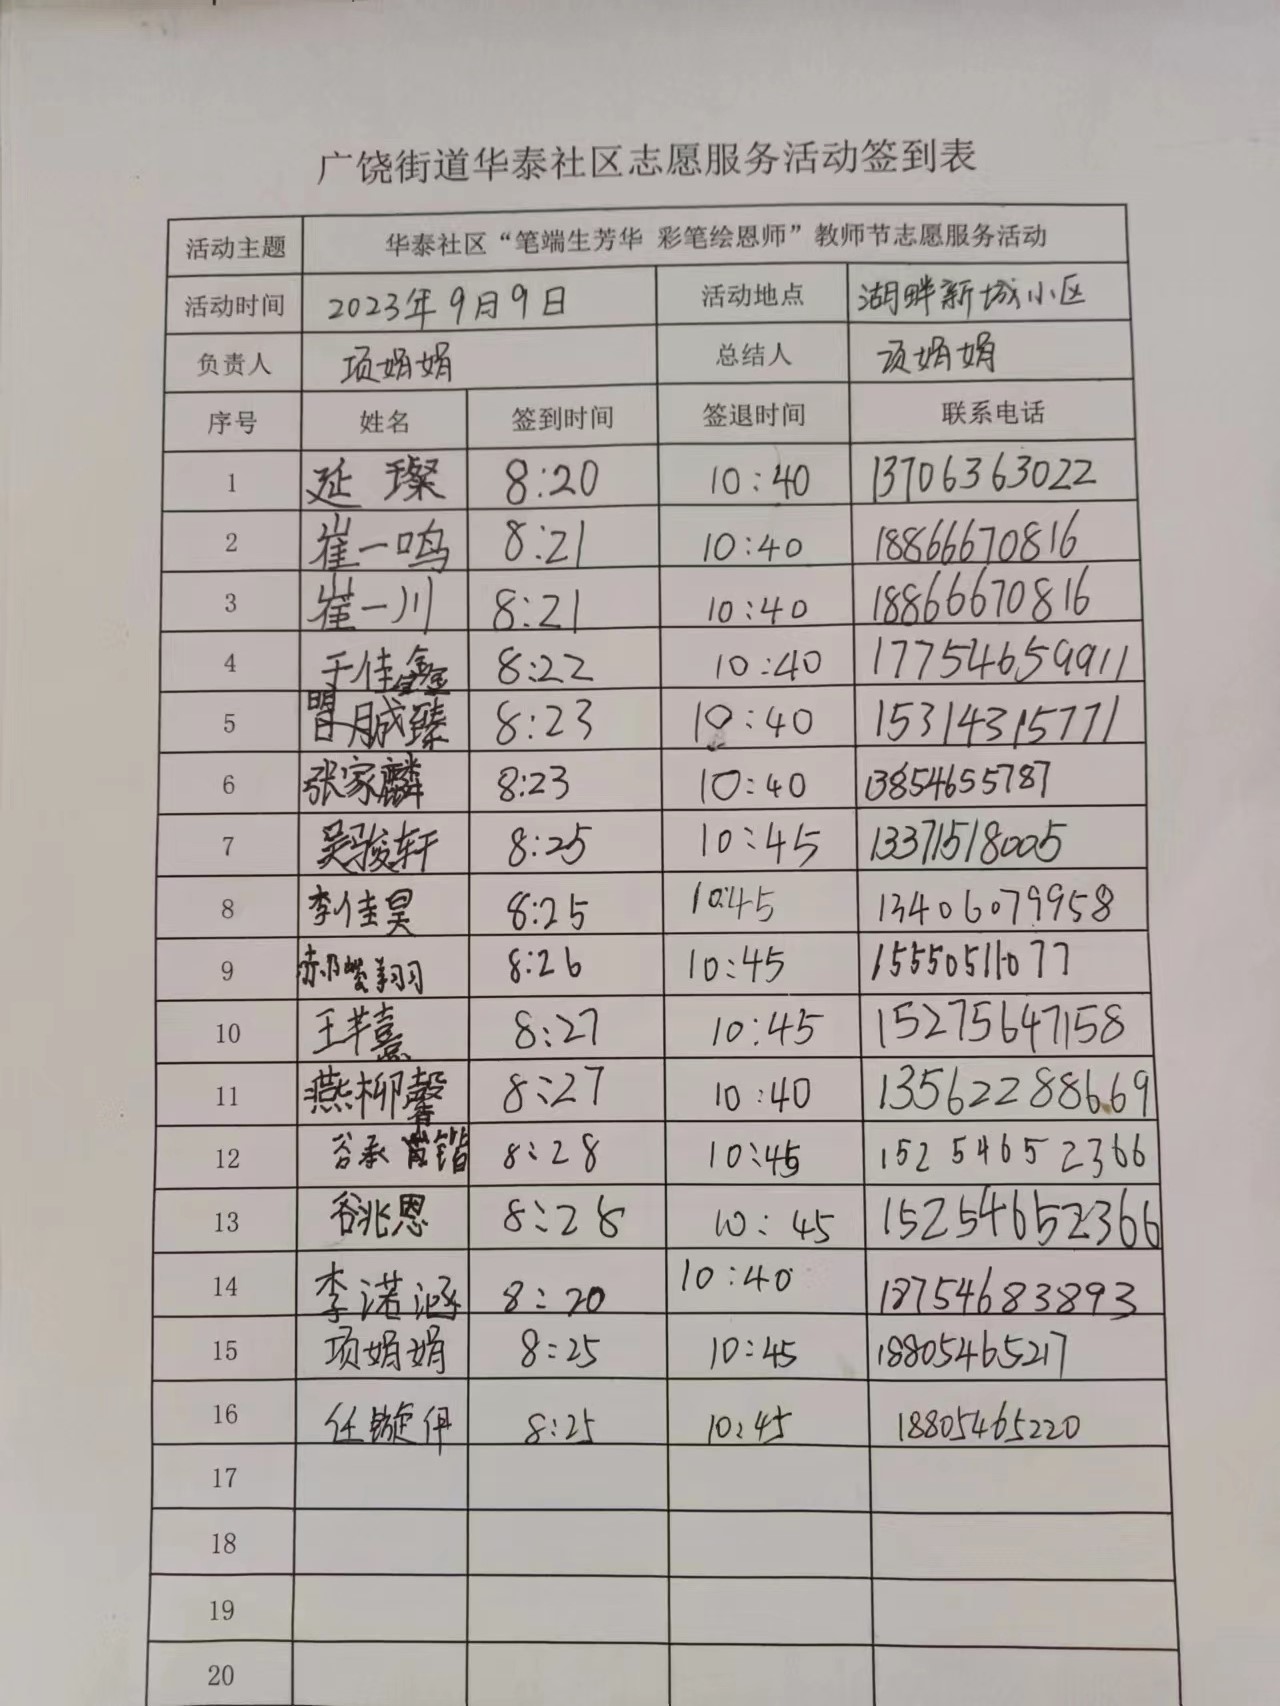 广饶街道华泰社区志愿服务活动签到表
活动主题 华泰社区“笔端生芳华 彩笔绘恩师”教师节志愿服务活动
活动时间 2023年9月9日 活动地点 湖畔新城小区
负责人 项娟娟 总结人 项娟娟
序号 姓名 签到时间 签退时间 联系电话
1 延璨 8:20 10:40 13706363022
2 崔一鸣 8:21 10:40 18866670816
3 崔一川 8:21 10:40 18866670816
4 于佳鑫 8:22 10:40 17754659911
5 8:23 10:40 15314315771
6 张家麟 8:23 10:40 13854655787
7 吴骏轩 8:25 10:45 13371518005
8 李佳昊 8:25 10:45 13406079958
9 8:26 10:45 15550511077
10 王芊熹 8:27 10:45 15275647158
11 燕柳馨 8:27 10:40 13562288669
12 谷承锴 8:28 10:45 15254652366
13 谷兆恩 8:28 10:45 15254652366
14 李诺涵 8:20 10:40 18754683893
15 项娟娟 8:25 10:45 18805465217
16 任镟伊 8:25 10:45 18805465220
17
18
19
20